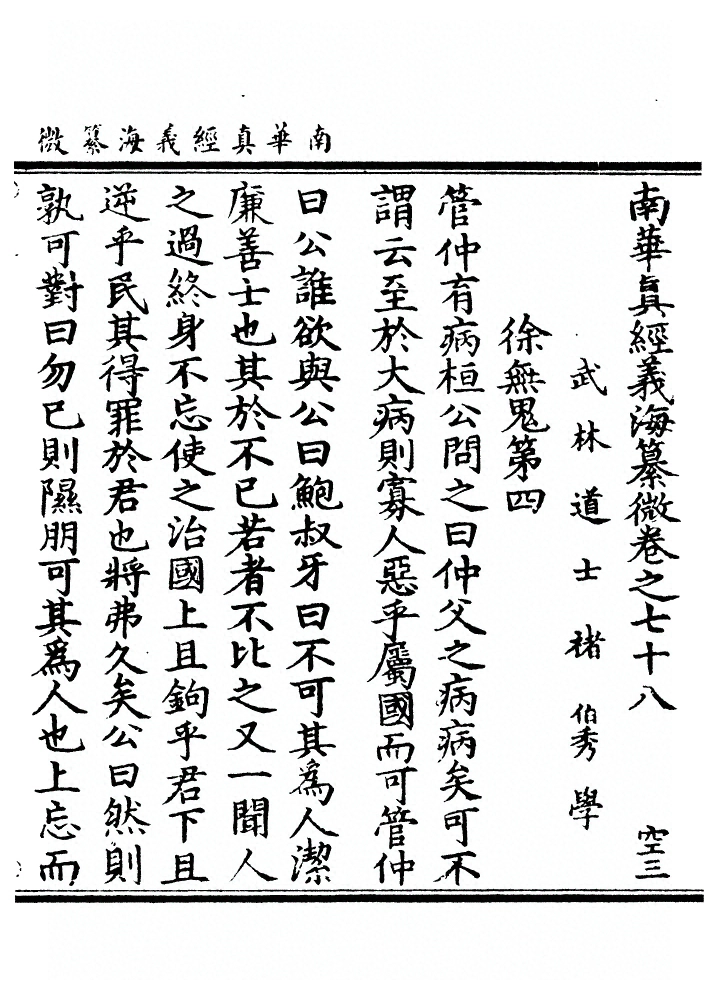 南華真經義海纂微
南華眞經義海纂微卷之七十八 空三
武林道士褚伯秀學
徐無鬼第四
管仲有病桓公問之曰仲父之病病矣可不
謂云至於大病則寡人惡乎屬國而可管仲
曰公誰欲與公曰鮑叔牙曰不可其爲人潔
廉善士也其於不已若者不比之又一聞人
之過終身不忘使之治國上且鉤乎君下且
逆乎民其得罪於君也將弗久矣公曰然則
孰可對曰勿已則隰朋可其爲人也上忘而